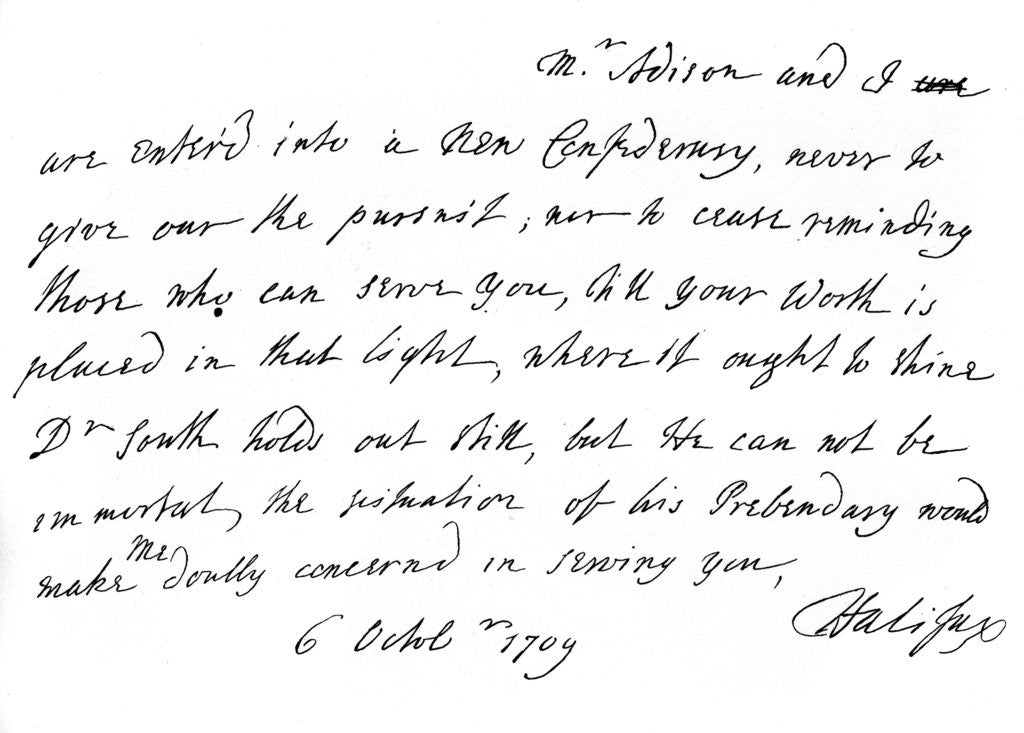 Mr. Adison and I are
are enter'd into a New Confederasy, never to
give our the pursuit, nor to cease reminding
those who can serve you, till your Worth is
placed in that light, where it ought to shine
Dr South holds out still, but He can not be
immortal, the sistuation of his Prebendary would
make me doubly concernd in serving you,
Halifax
6 Octobr 1709